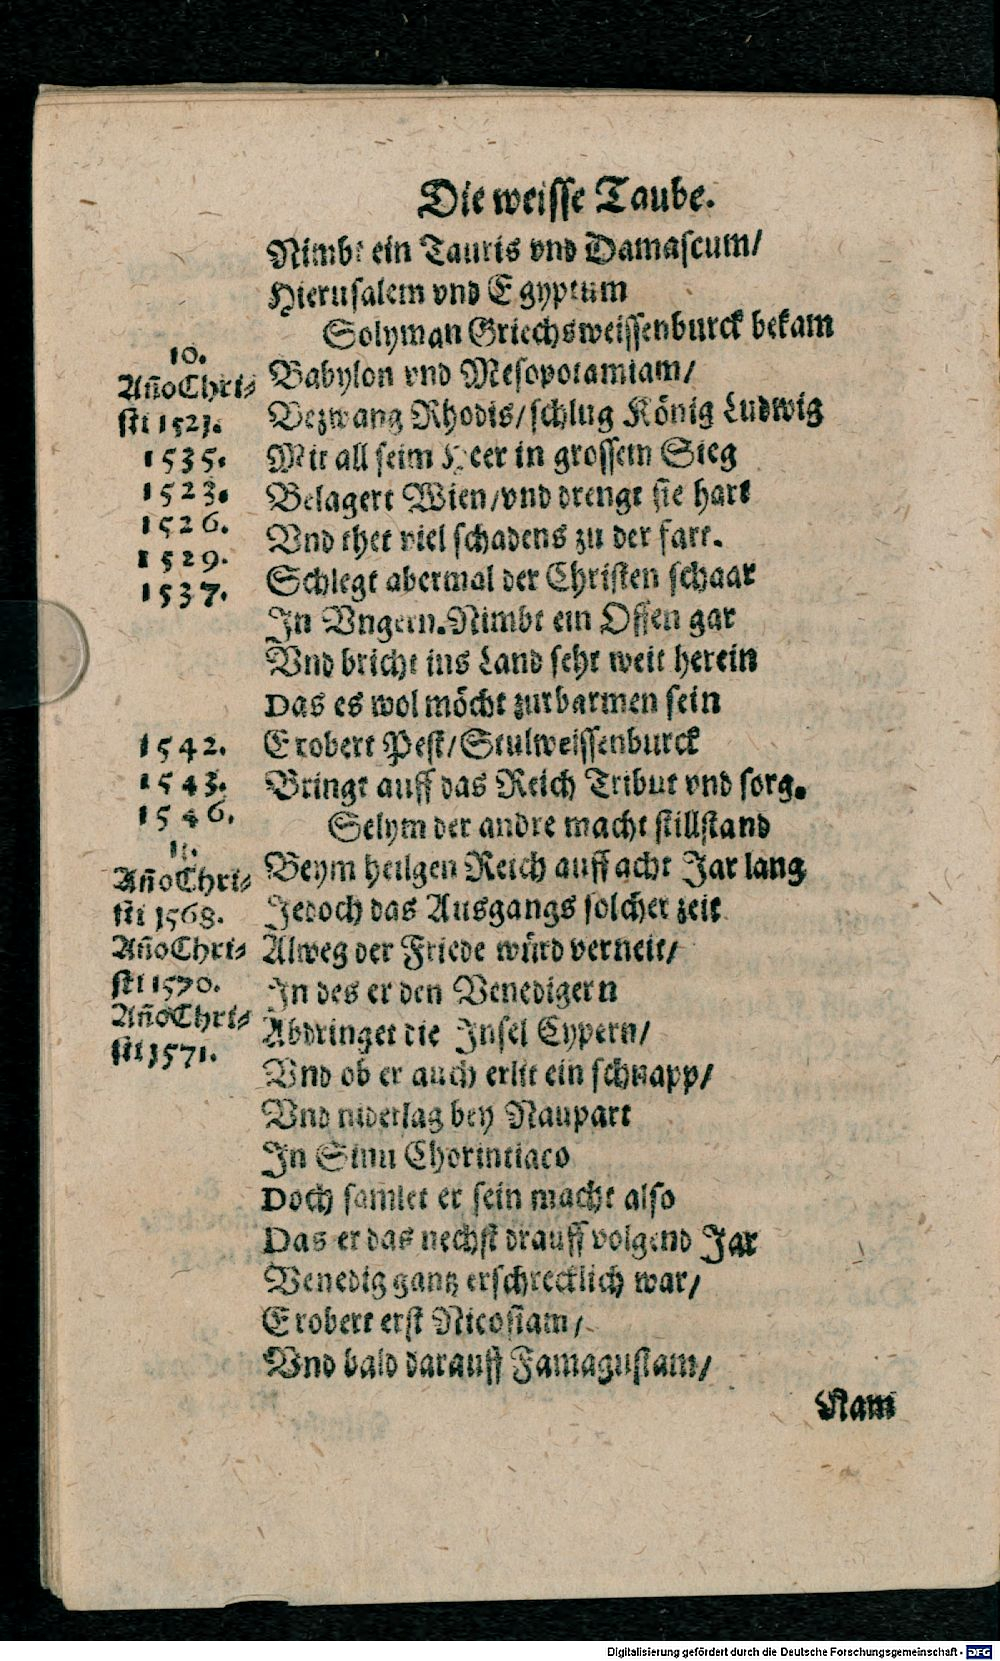 Die weisse Taube.
Nimbt ein Tauris vnd Damascum/
Hierusalem vnd Egyptum
Solyman Griechsweissenburck bekam
10.
Año Chri-
sti 1521.
1535.
1523.
1526.
1529.
1537.
Babylon vnd Mesopotamiam/
Bezwang Rhodis/schlug König Ludwig
Mit all seim Heer in grossem Sieg
Belagert Wien/vnd drengt sie hart
Vnd thet viel schadens zu der fart.
Schlegt abermal der Christen schaar
In Vngern. Nimbt ein Offen gar
Vnd bricht ins Land sehr weit herein
Das es wol möcht zurbarmen sein
1542.
1543.
1546.
Erobert Pest/Stulweissenburck
Bringt auff das Reich Tribut vnd sorg.
Selym der andre macht stillstand
11.
Año Chri-
sti 1568.
Año Chri-
sti 1570.
Año Chri-
sti 1571.
Beym heilgen Reich auff acht Jar lang
Jedoch das Ausgangs solcher zeit
Alweg der Friede würd verneit/
In des er den Venedigern
Abdringet die Insel Cypern/
Vnd ob er auch erlit ein schnapp/
Vnd niderlag bey Naupart
In Sinu Chorintiaco
Doch samlet er sein macht also
Das er das nechst drauff volgend Jar
Venedig gantz erschrecklich war/
Erobert erst Nicosiam/
Vnd bald darauff Famagustam/
Kam
Digitalisierung gefördert durch die Deutsche Forschungsgemeinschaft - DFG